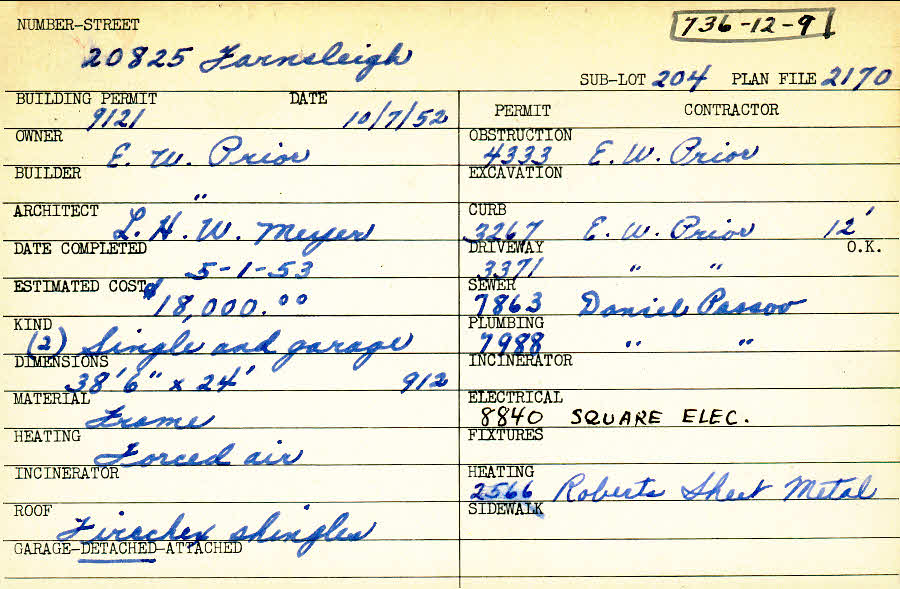 NUMBER-STREET
736-12-9
20825 Farnsleigh
SUB-LOT 204 PLAN FILE 2170
BUILDING PERMIT DATE
9121 10/7/52
OWNER
E. W. Prior
BUILDER
"
ARCHITECT
L. H. W. Meyer
DATE COMPLETED
5-1-53
ESTIMATED COST $
18,000.00
KIND
(2) Single and garage
DIMENSIONS
38'6" x 24' 912
MATERIAL
Frame
HEATING
Forced air
INCINERATOR
ROOF
Firechex shingles
GARAGE-DETACHED-ATTACHED
PERMIT CONTRACTOR
OBSTRUCTION
4333 E. W. Prior
EXCAVATION
CURB
3267 E. W. Prior 12'
DRIVEWAY O.K.
3371 " "
SEWER
7863 Daniel Passov
PLUMBING
7988 " "
INCINERATOR
ELECTRICAL
8840 SQUARE ELEC.
FIXTURES
HEATING
2566 Roberts Sheet Metal
SIDEWALK